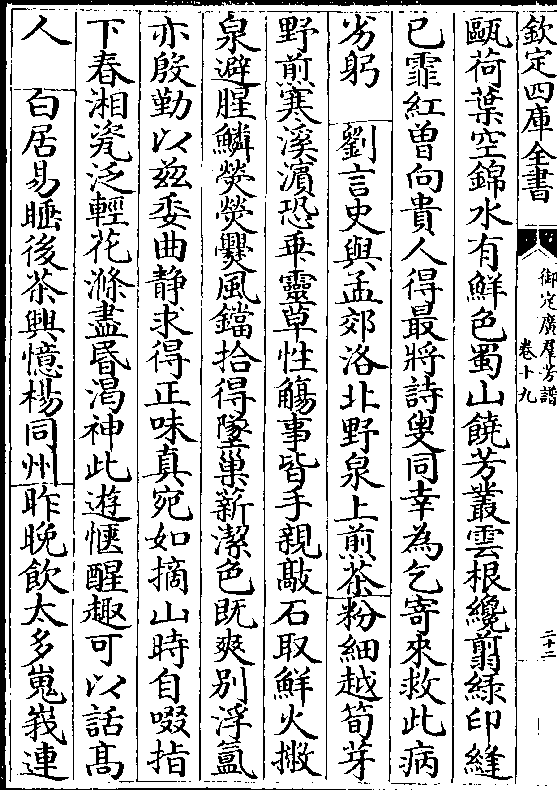 欽定四庫全書
御定廣羣芳譜
卷十九
二十二
甌荷葉空錦水有鮮色蜀山饒芳叢雲根纔翦緑印縫
已霏紅曽向貴人得最將詩叟同幸為乞寄來救此病
劣躬　劉言史與孟郊洛北野泉上煎茶粉細越筍芽
野煎寒溪濵恐乖靈草性觸事皆手親敲石取鮮火撇
泉避腥鱗熒熒㸑風鐺拾得墜巢薪潔色既爽别浮氳
亦殷勤以兹委曲静求得正味真宛如摘山時自啜指
下春湘瓷泛輕花滌盡昏渇神此遊愜醒趣可以話髙
人　白居易睡後茶興憶楊同州昨晚飲太多嵬峩連